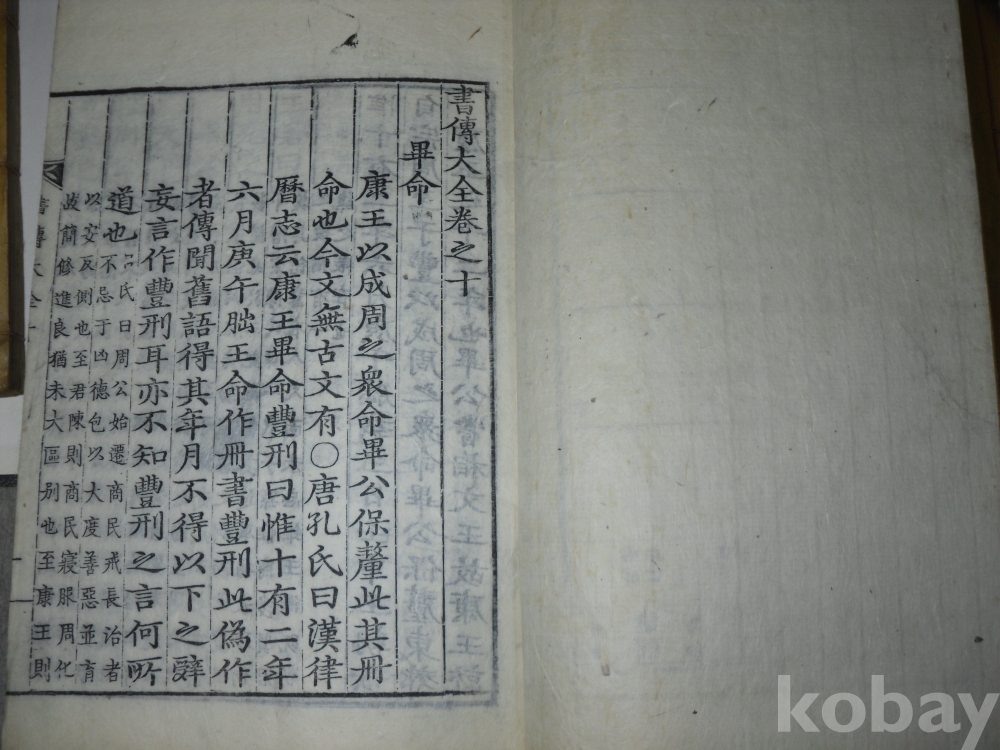 書傳大全卷之十
畢命
康王以成周之衆命畢公保釐此其冊
命也今文無古文有○唐孔氏曰漢律
曆志云康王畢命豐刑曰惟十有二年
六月庚午朏王命作冊書豐刑此僞作
者傳聞舊語得其年月不得以下之辭
妄言作豐刑耳亦不知豐刑之言何所
道也
呂氏曰周公始遷商民戒長治者
不忌于凶德包以大度善惡並育
以安反側也至君陳則商民寖服周化
故簡修進良猶未大區別也至康王則
書傳大全十
kobay